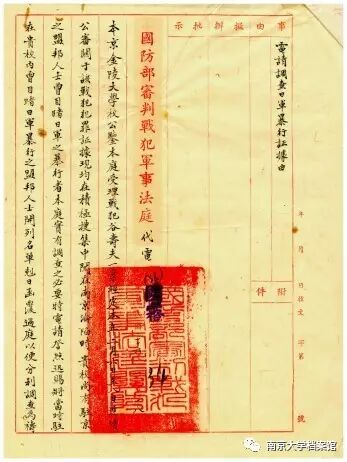 事由擬辦批示
電請調查日軍暴行証據由
附件
年 月 日 收文 字第 號
國防部審判戰犯軍事法庭 代電
本京金陵大學校公鑒本庭受理戰犯谷壽夫一
公審關于該戰犯犯罪証據現均在積極搜集中聞在南京淪陷時貴校尚有駐京
之盟邦人士曾目睹日軍之暴行者本庭實有調查之必要特電請詧照迅賜將當時駐
在貴校內曾目睹日軍暴行之盟邦人士開列名單剋日函覆過庭以便分別調查為禱
南京大学档案馆